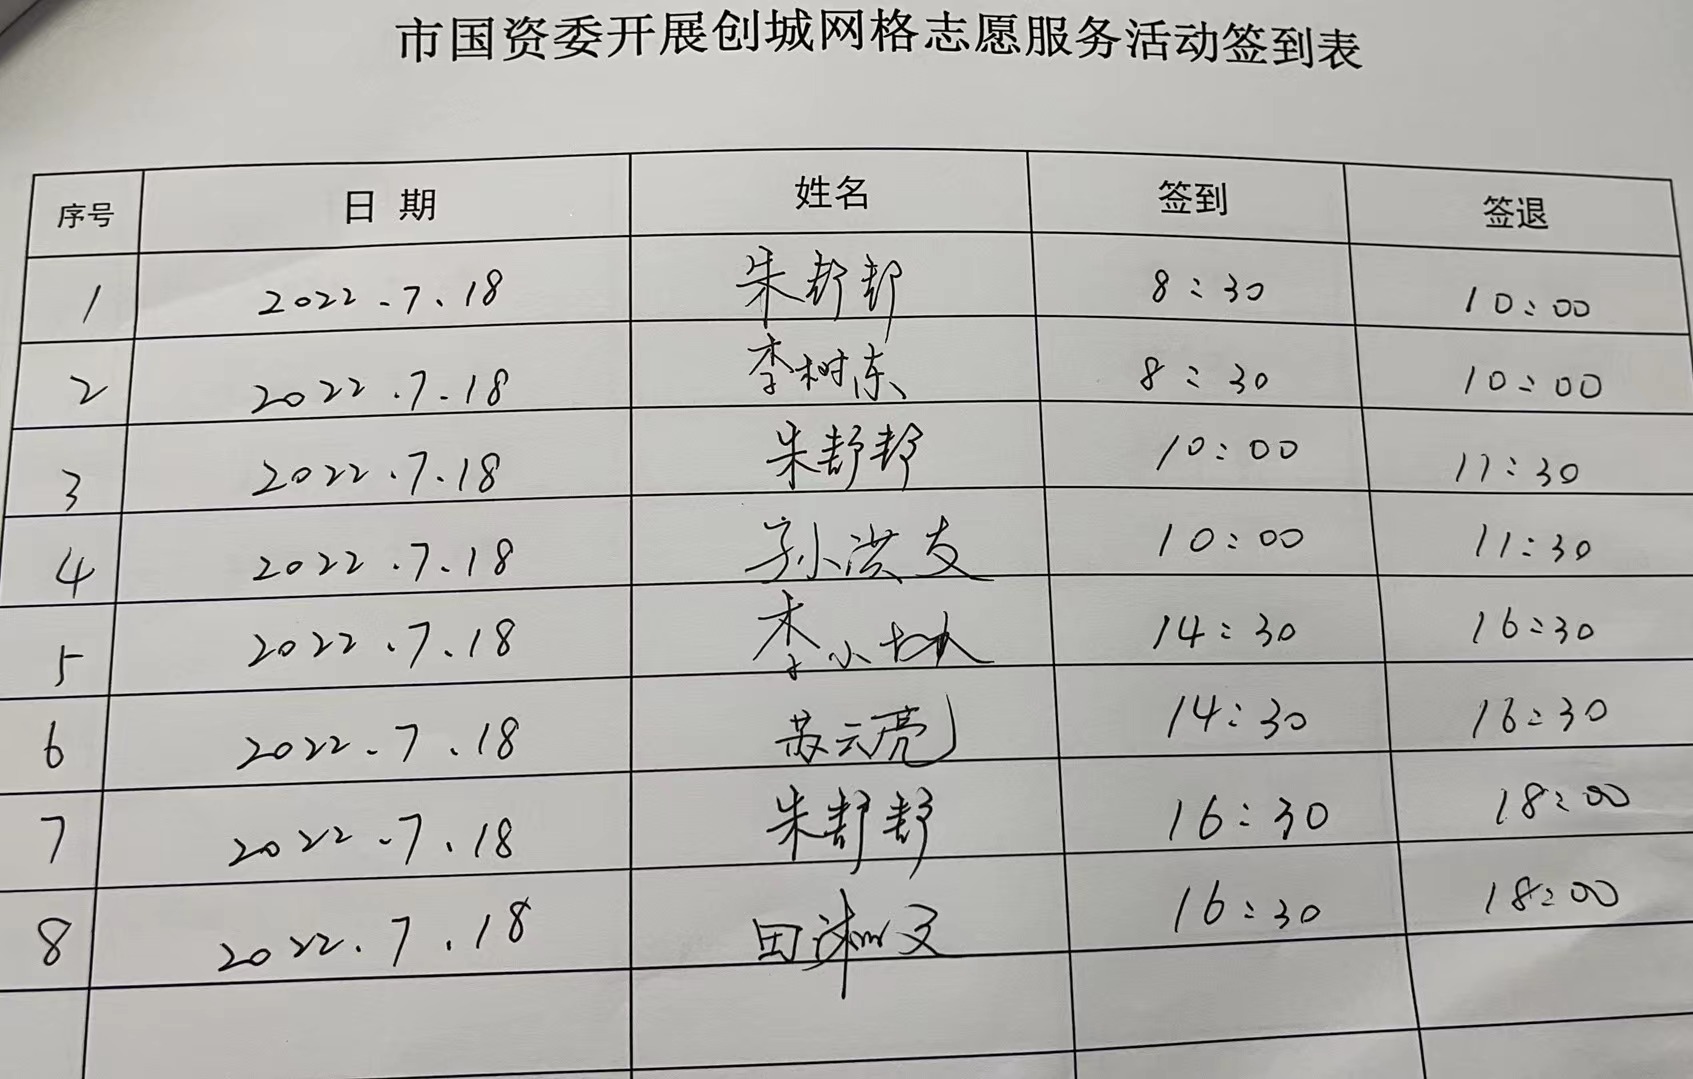 市国资委开展创城网格志愿服务活动签到表
序号 日期 姓名 签到 签退
1 2022.7.18 朱舒舒 8:30 10:00
2 2022.7.18 李树东 8:30 10:00
3 2022.7.18 朱舒舒 10:00 11:30
4 2022.7.18 孙洪友 10:00 11:30
5 2022.7.18 李小 14:30 16:30
6 2022.7.18 苏云亮 14:30 16:30
7 2022.7.18 朱舒舒 16:30 18:00
8 2022.7.18 田 16:30 18:00